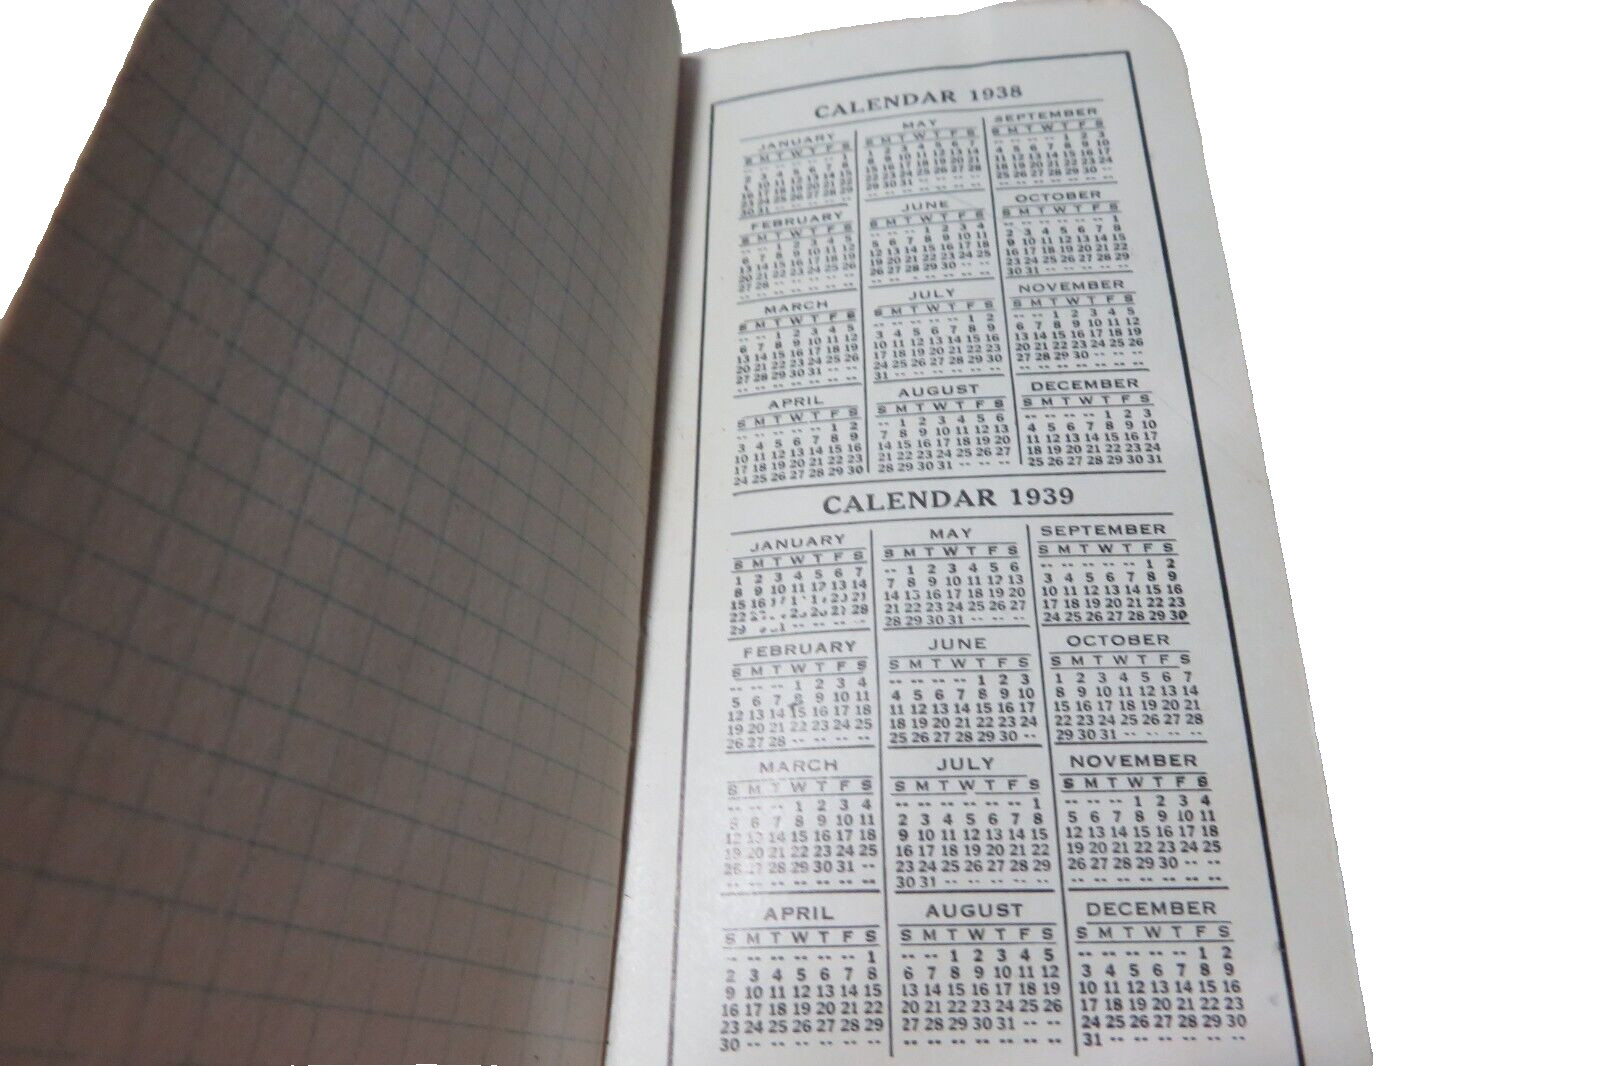 CALENDAR 1938
JANUARY
S M T W T F S
-- -- -- -- -- -- 1
2 3 4 5 6 7 8
9 10 11 12 13 14 15
16 17 18 19 20 21 22
23 24 25 26 27 28 29
30 31 -- -- -- -- --
FEBRUARY
S M T W T F S
-- -- 1 2 3 4 5
6 7 8 9 10 11 12
13 14 15 16 17 18 19
20 21 22 23 24 25 26
27 28 -- -- -- -- --
-- -- -- -- -- -- --
MARCH
S M T W T F S
-- -- 1 2 3 4 5
6 7 8 9 10 11 12
13 14 15 16 17 18 19
20 21 22 23 24 25 26
27 28 29 30 31 -- --
-- -- -- -- -- -- --
APRIL
S M T W T F S
-- -- -- -- -- 1 2
3 4 5 6 7 8 9
10 11 12 13 14 15 16
17 18 19 20 21 22 23
24 25 26 27 28 29 30
MAY
S M T W T F S
1 2 3 4 5 6 7
8 9 10 11 12 13 14
15 16 17 18 19 20 21
22 23 24 25 26 27 28
29 30 31 -- -- -- --
-- -- -- -- -- -- --
JUNE
S M T W T F S
-- -- -- 1 2 3 4
5 6 7 8 9 10 11
12 13 14 15 16 17 18
19 20 21 22 23 24 25
26 27 28 29 30 -- --
-- -- -- -- -- -- --
JULY
S M T W T F S
-- -- -- -- -- 1 2
3 4 5 6 7 8 9
10 11 12 13 14 15 16
17 18 19 20 21 22 23
24 25 26 27 28 29 30
31 -- -- -- -- -- --
AUGUST
S M T W T F S
-- 1 2 3 4 5 6
7 8 9 10 11 12 13
14 15 16 17 18 19 20
21 22 23 24 25 26 27
28 29 30 31 -- -- --
SEPTEMBER
S M T W T F S
-- -- -- -- 1 2 3
4 5 6 7 8 9 10
11 12 13 14 15 16 17
18 19 20 21 22 23 24
25 26 27 28 29 30 --
-- -- -- -- -- -- --
OCTOBER
S M T W T F S
-- -- -- -- -- -- 1
2 3 4 5 6 7 8
9 10 11 12 13 14 15
16 17 18 19 20 21 22
23 24 25 26 27 28 29
30 31 -- -- -- -- --
NOVEMBER
S M T W T F S
-- -- 1 2 3 4 5
6 7 8 9 10 11 12
13 14 15 16 17 18 19
20 21 22 23 24 25 26
27 28 29 30 -- -- --
-- -- -- -- -- -- --
DECEMBER
S M T W T F S
-- -- -- -- 1 2 3
4 5 6 7 8 9 10
11 12 13 14 15 16 17
18 19 20 21 22 23 24
25 26 27 28 29 30 31
CALENDAR 1939
JANUARY
S M T W T F S
1 2 3 4 5 6 7
8 9 10 11 12 13 14
15 16 21
22 27 28
29 -- -- -- --
FEBRUARY
S M T W T F S
-- -- -- 1 2 3 4
5 6 7 8 9 10 11
12 13 14 15 16 17 18
19 20 21 22 23 24 25
26 27 28 -- -- -- --
MARCH
S M T W T F S
-- -- -- 1 2 3 4
5 6 7 8 9 10 11
12 13 14 15 16 17 18
19 20 21 22 23 24 25
26 27 28 29 30 31 --
-- -- -- -- -- -- --
APRIL
S M T W T F S
-- -- -- -- -- -- 1
2 3 4 5 6 7 8
9 10 11 12 13 14 15
16 17 18 19 20 21 22
23 24 25 26 27 28 29
30 -- -- -- -- -- --
MAY
S M T W T F S
-- 1 2 3 4 5 6
7 8 9 10 11 12 13
14 15 16 17 18 19 20
21 22 23 24 25 26 27
28 29 30 31 -- -- --
JUNE
S M T W T F S
-- -- -- -- 1 2 3
4 5 6 7 8 9 10
11 12 13 14 15 16 17
18 19 20 21 22 23 24
25 26 27 28 29 30 --
JULY
S M T W T F S
-- -- -- -- -- -- 1
2 3 4 5 6 7 8
9 10 11 12 13 14 15
16 17 18 19 20 21 22
23 24 25 26 27 28 29
30 31 -- -- -- -- --
AUGUST
S M T W T F S
-- -- 1 2 3 4 5
6 7 8 9 10 11 12
13 14 15 16 17 18 19
20 21 22 23 24 25 26
27 28 29 30 31 -- --
-- -- -- -- -- -- --
SEPTEMBER
S M T W T F S
-- -- -- -- -- 1 2
3 4 5 6 7 8 9
10 11 12 13 14 15 16
17 18 19 20 21 22 23
24 25 26 27 28 29 30
OCTOBER
S M T W T F S
1 2 3 4 5 6 7
8 9 10 11 12 13 14
15 16 17 18 19 20 21
22 23 24 25 26 27 28
29 30 31 -- -- -- --
NOVEMBER
S M T W T F S
-- -- -- 1 2 3 4
5 6 7 8 9 10 11
12 13 14 15 16 17 18
19 20 21 22 23 24 25
26 27 28 29 30 -- --
-- -- -- -- -- -- --
DECEMBER
S M T W T F S
-- -- -- -- -- 1 2
3 4 5 6 7 8 9
10 11 12 13 14 15 16
17 18 19 20 21 22 23
24 25 26 27 28 29 30
31 -- -- -- -- -- --